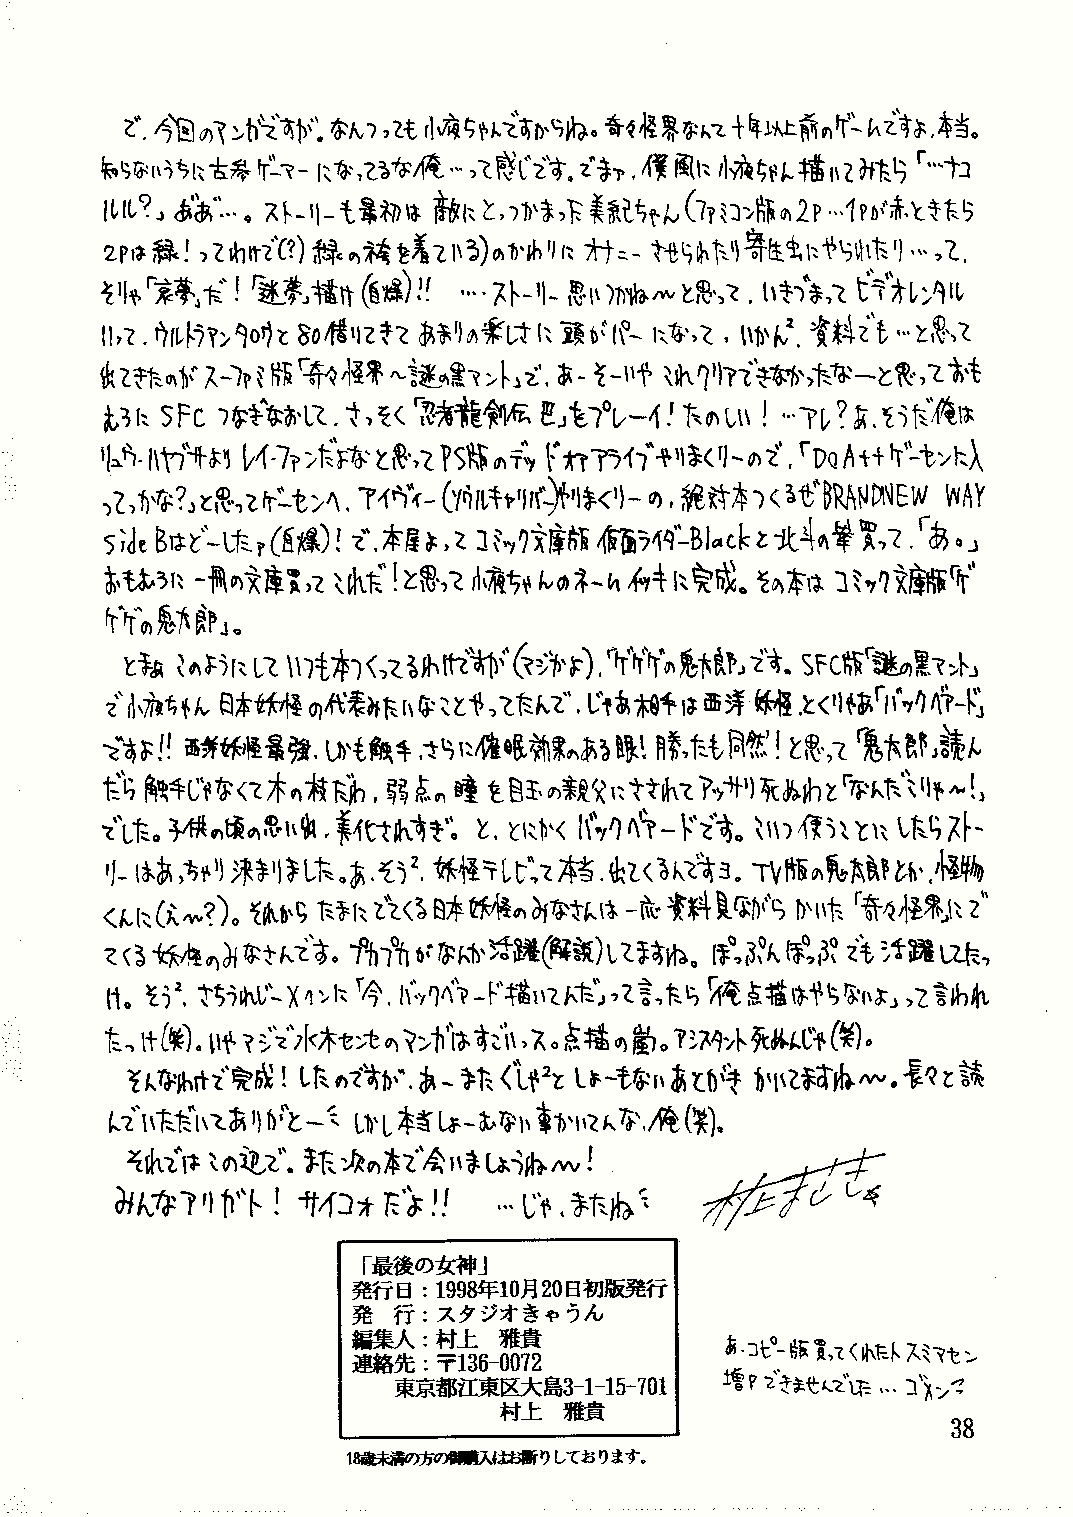 で、今回のマンガですが。なんつっても小夜ちゃんですからね。奇々怪界なんて十年以上前のゲームですよ、本当。
知らないうちに古参ゲーマーになってるな俺…って感じです。でまァ、僕風に小夜ちゃん描いてみたら「…ナコ
ルル?」あ゛あ゛…。ストーリーも最初は敵にとっつかまった美紀ちゃん(ファミコン版の2P…1Pが赤ときたら
2Pは緑!ってわけで(?)緑の袴を着ている)のかわりにオナニーさせられたり寄生虫にやられたり…って、
そりゃ「哀夢」だ!「謎夢」描け(自爆)!! ‥‥ストーリー思いつかね〜と思って、いきづまってビデオレンタル
いって、ウルトラマンタロウと80借りてきてあまりの楽しさに頭がパーになって、いかん²、資料でも…と思って
出てきたのがスーファミ版「奇々怪界〜謎の黒マント」で、あーそーいやこれクリアできなかったなーと思っておも
むろにSFCつなぎなおして、さっそく「忍者龍剣伝巴」をプレーイ!たのしい!…アレ?あ、そうだ俺は
リュウ・ハヤブサよりレイ・ファンだよなと思ってPS版のデッドオアアライブやりまくりーので、「DOA++ゲーセンに入
ってっかな?」と思ってゲーセンへ、アイヴィー(ソウルキャリバー)やりまくりーの、絶対本つくるぜBRANDNEW WAY
side Bはどーしたァ(自爆)!で、本屋よってコミック文庫版仮面ライダーBlackと北斗の拳買って、「あ。」
おもむろに一冊の文庫買ってこれだ!と思って小夜ちゃんのネームイッキに完成。その本はコミック文庫版「ゲ
ゲゲの鬼太郎」。
とまぁこのようにしていつも本つくってるわけですが(マジかよ)、「ゲゲゲの鬼太郎」です。SFC版「謎の黒マント」
で小夜ちゃん日本妖怪の代表みたいなことやってたんで、じゃあ相手は西洋妖怪、とくりゃあ「バックベアード」
ですよ!!西洋妖怪最強、しかも触手、さらに催眠効果のある眼!勝ったも同然!と思って「鬼太郎」読ん
だら触手じゃなくて木の枝だわ、弱点の瞳を目玉の親父にさされてアッサリ死ぬわと「なんだこりゃ〜!」
でした。子供の頃の思い出、美化されすぎ。と、とにかくバックベアードです。こいつ使うことにしたらストー
リーはあっちゃり決まりました。あ、そう²、妖怪テレビって本当、出てくるんですヨ。TV版の鬼太郎とか、怪物
くんに(え〜?)。それからたまにでてくる日本妖怪のみなさんは一応資料見ながらかいた「奇々怪界」にで
てくる妖怪のみなさんです。プカプカがなんか活躍(解説)してますね。ぽっぷんぽっぷでも活躍してたっ
け。そう²、さちうれじーXクンに「今、バックベアード描いてんだ」って言ったら「俺点描はやらないよ」って言われ
たっけ(笑)。いやマジで水木センセのマンガはすごいっス。点描の嵐。アシスタント死ぬんじゃ(笑)。
そんなわけで完成!したのですが、あーまたぐしゃ²としょーもないあとがきかいてますね〜。長々と読
んでいただいてありがとーミ しかし本当しょーむない事かいてんな、俺(笑)。
それではこの辺で。また次の本で会いましょうね〜!
みんなアリガト! サイコォだよ!! …じゃ、またねミ
村上まさき
「最後の女神」
発行日：1998年10月20日初版発行
発　行：スタジオきゃうん
編集人：村上　雅貴
連絡先：〒136-0072
東京都江東区大島3-1-15-701
村上　雅貴
18歳未満の方の御購入はお断りしております。
あ、コピー版買ってくれた人スミマセン
増Pできませんでした…ゴメンネ
38